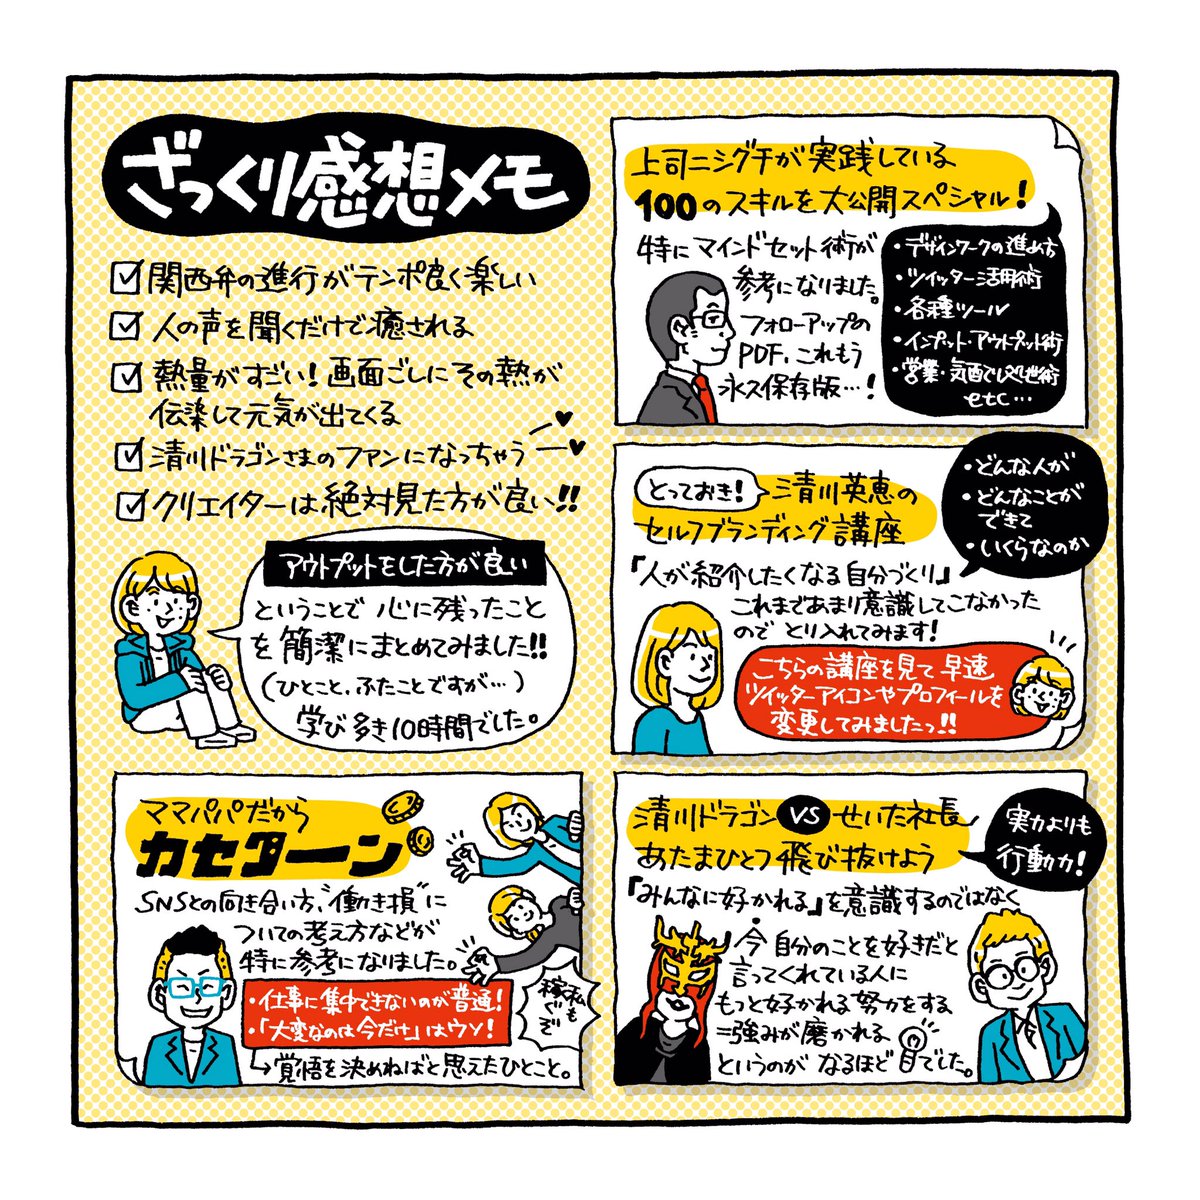 ざっくり感想メモ
関西弁の進行がテンポ良く楽しい
人の声を聞くだけで癒される
熱量がすごい!画面ごしにその熱が
伝染して元気が出てくる
清川ドラゴンさまのファンになっちゃう
クリエイターは絶対見た方が良い!!
アウトプットをした方が良い
ということで 心に残ったこと
を簡潔にまとめてみました!!
(ひとこと、ふたことですが…)
学び多き10時間でした。
上司ニシグチが実践している
100のスキルを大公開スペシャル!
特にマインドセット術が
参考になりました。
フォローアップの
PDF、これもう
永久保存版…!
・デザインワークの進め方
・ツイッター活用術
・各種ツール
・インプット・アウトプット術
・営業・気配りレベル世術
etc…
とっておき!
清川英恵の
セルフブランディング講座
・どんな人が
・どんなことが
できて
・いくらなのか
「人が紹介したくなる自分づくり」
これまであまり意識してこなかった
のでとり入れてみます!
こちらの講座を見て早速
ツイッターアイコンやプロフィールを
変更してみましたっ!!
ママパパだから
カセターン
SNSとの向き合い方、"働き損"に
ついての考え方などが
特に参考になりました。
・仕事に集中できないのが普通!
・「大変なのは今だけ」はウソ!
↳覚悟を決めねばと思えたひとこと。
私も
稼ぐぞ
清川ドラゴン VS せいた社長
あたまひとつ飛び抜けよう
実力よりも
行動力!
「みんなに好かれる」を意識するのではなく
今自分のことを好きだと
言ってくれている人に
もっと好かれる努力をする
=強みが磨かれる
というのが なるほど目でした。